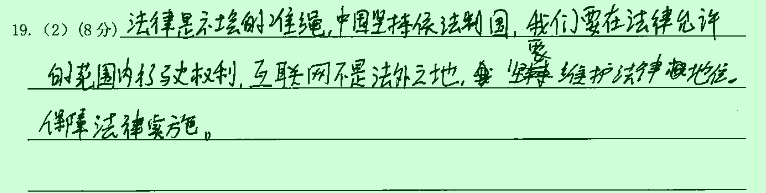 19.（2）(8分) 法律是示的准绳,中国坚持依法制国，我们要在法律允许
的范围内行权利,互联网不是法外之地,要坚维护法律地位。
保障法律实施。